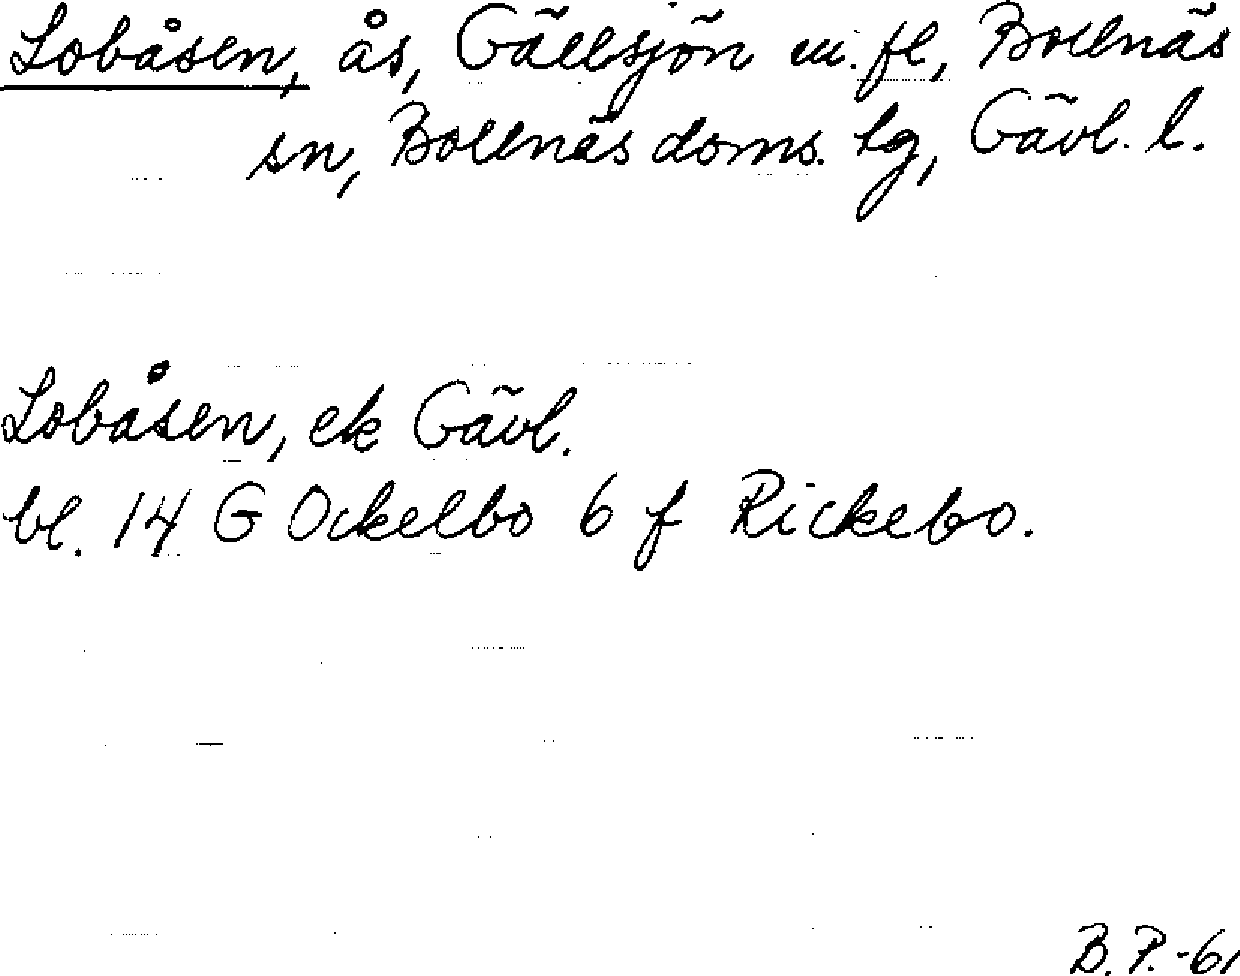 Lobåsen, ås, Gällsjön m.fl, Bollnäs
sn, Bollnäs doms. tg, Gävl. l.
Lobåsen, ek Gävl.
bl. 14 G Ockelbo 6 f Rickebo.
B. P. -61